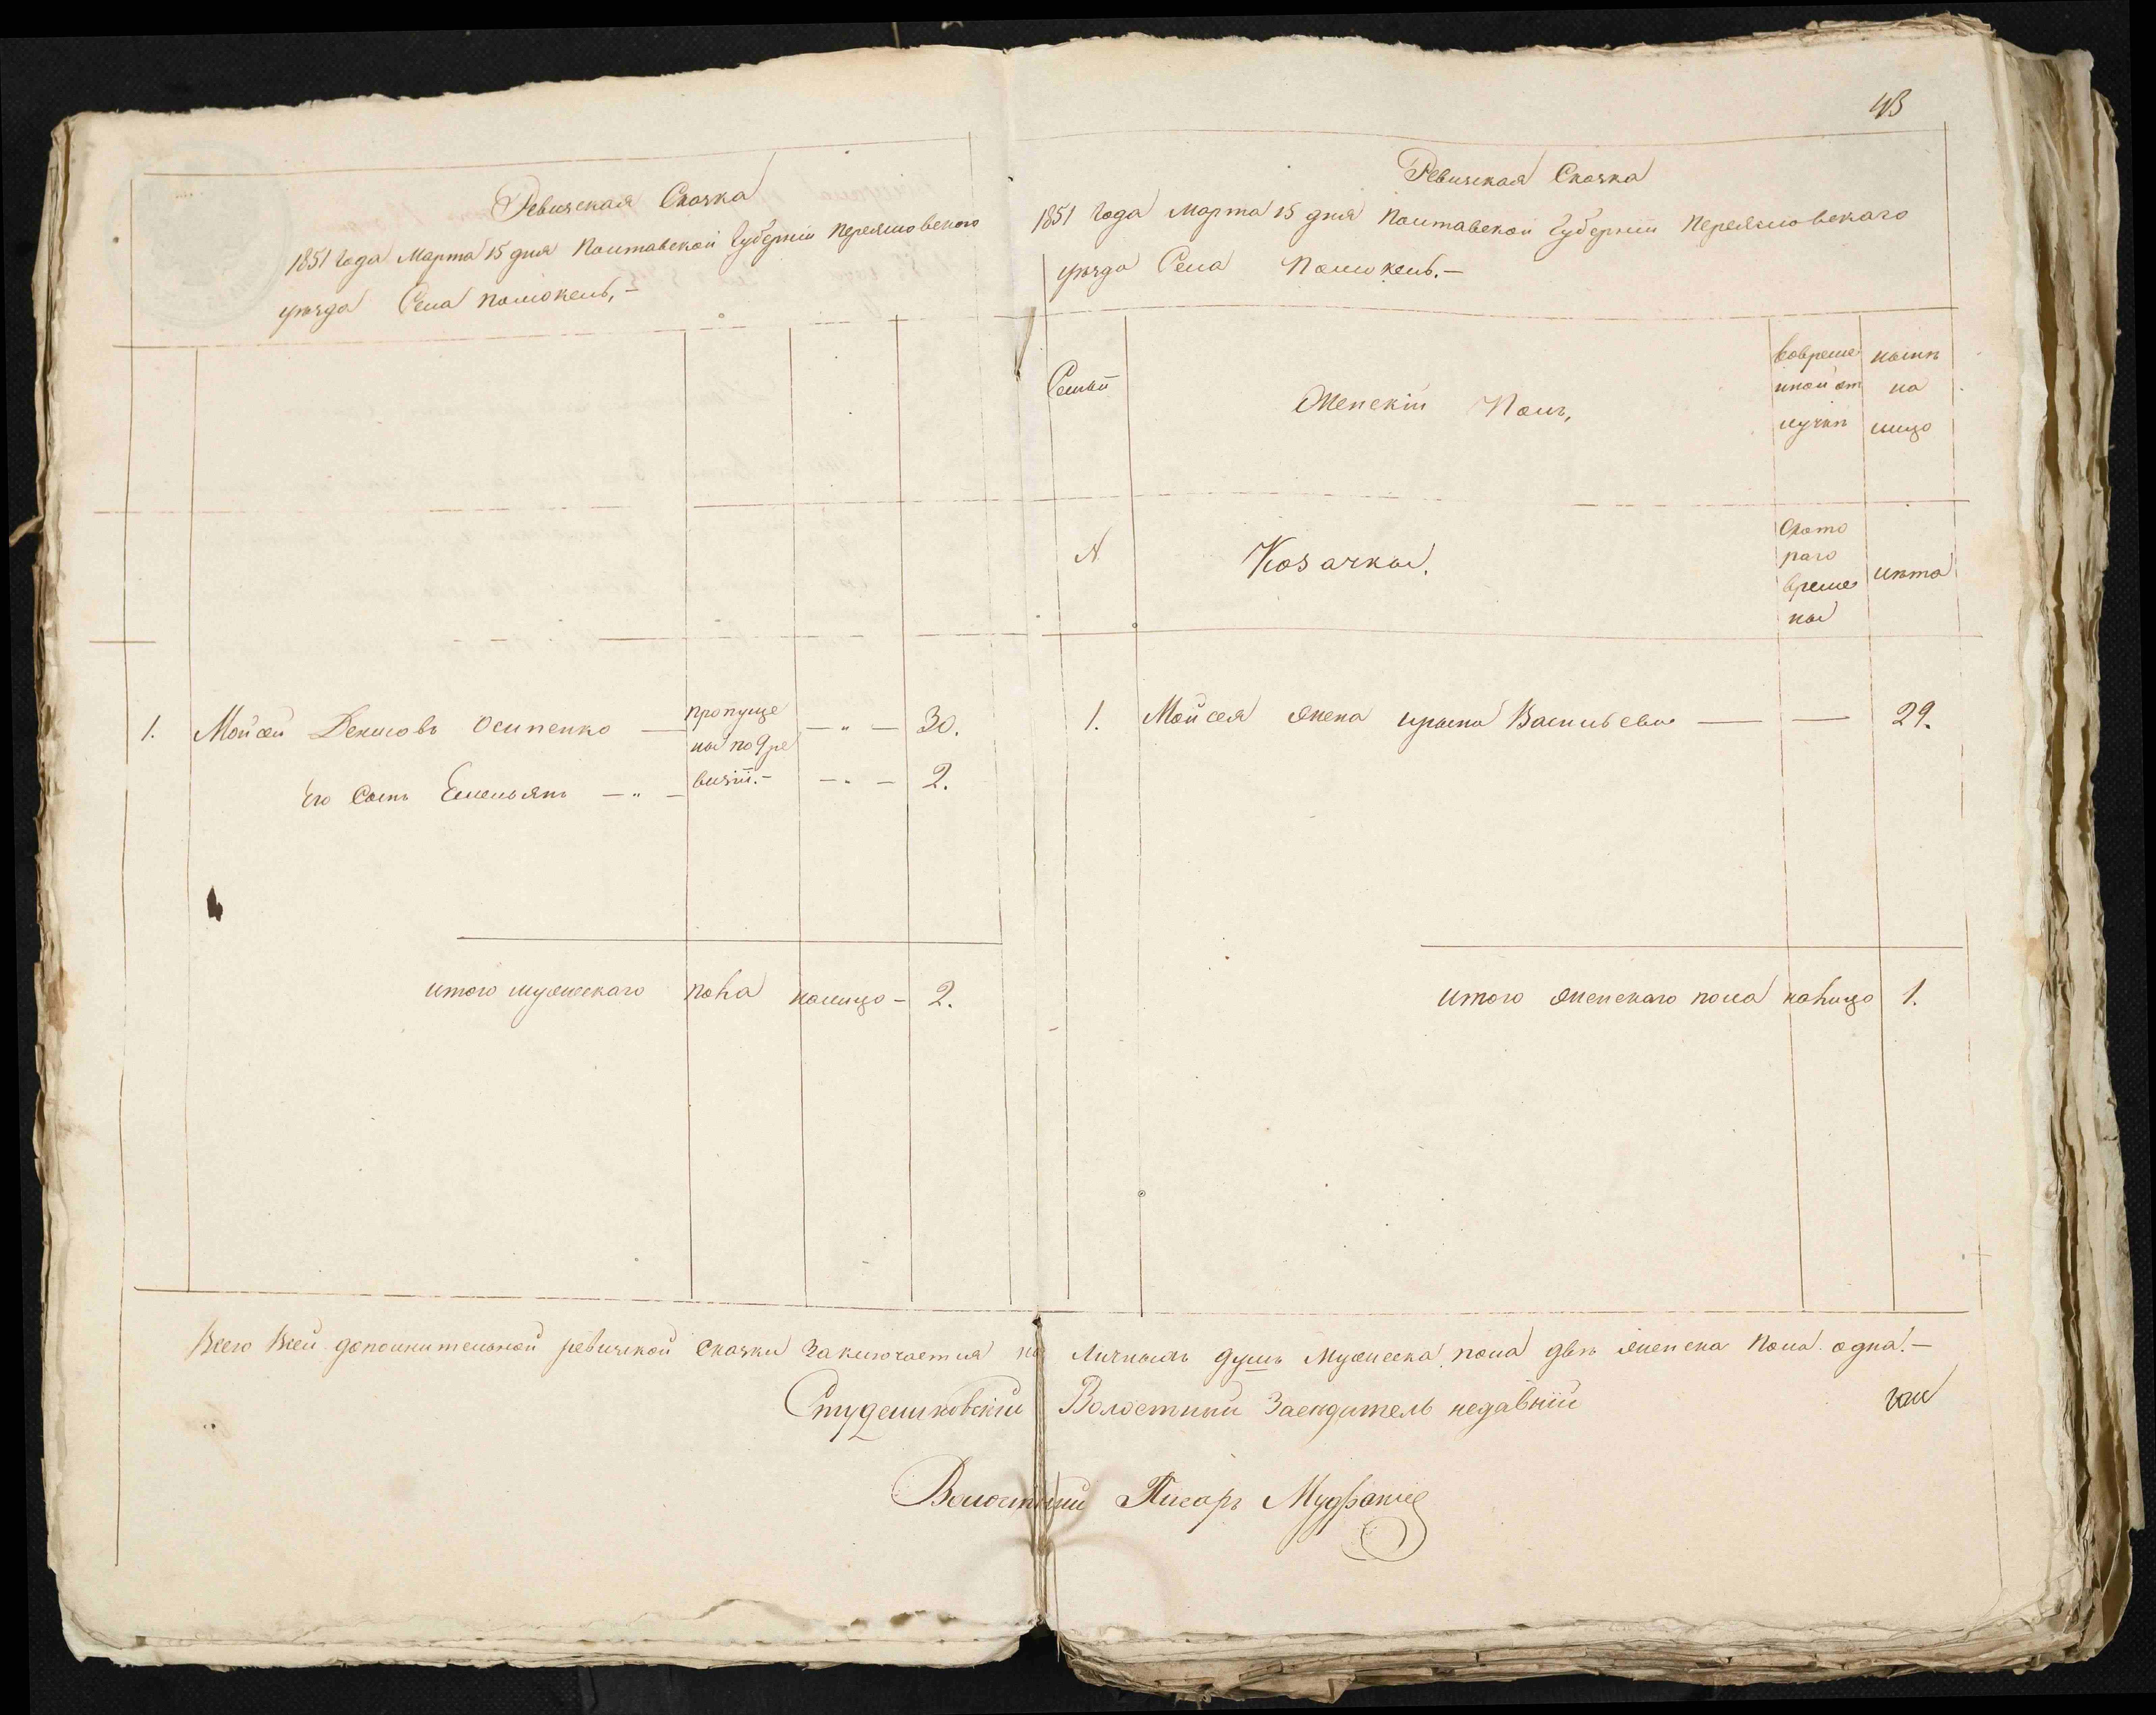 Ревизская Сказка
1851 Года Марта 15 дня Полтавской Губерніи Переяславского
уѣзда Села Помокель,-
1. Мойсей Денисовъ Осипенко — пропуще — " — 30.
ны по 9 ре
Его Сынъ Емельянъ — " — визіи.- — " — 2.
итого мужескаго пола налицо - 2.
43
Ревизская Сказка
1851 Года Марта 15 дня Полтавской Губерніи Переяславскаго
уѣзда Села Помокель.-
Семьи Женскій Полъ, вовреме нынѣ
нной от на
лучкѣ лицо
№ Козачки. Скато
раго
време лѣта
ны
1. Мойсея жена Ирына Васильева — — 29.
итого женскаго пола налицо 1.
Всего Всей дополнительной ревизской сказки Заключается на Личныхъ душъ Мужеска пола двѣ женска пола одна.-
Студениковскій Волостный Заседатель недавній
Волостный Писарь